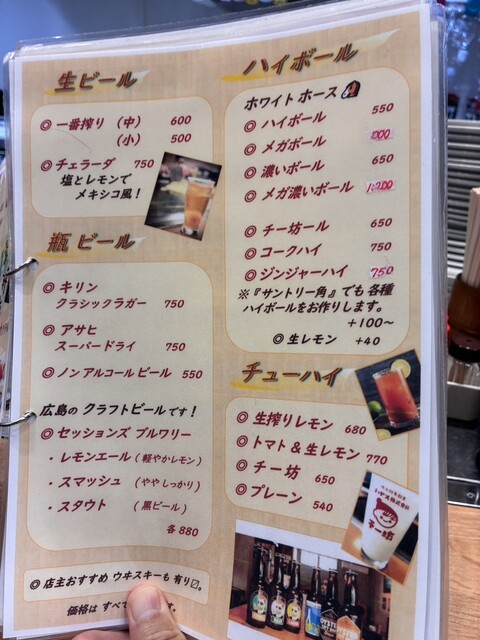 生ビール
◎ 一番搾り (中) 600
(小) 500
◎ チェラーダ 750
塩とレモンで
メキシコ風！
瓶ビール
◎ キリン
クラシックラガー 750
◎ アサヒ
スーパードライ 750
◎ ノンアルコールビール 550
広島のクラフトビールです！
◎ セッションズ ブルワリー
・レモンエール (軽やかレモン)
・スマッシュ (ややしっかり)
・スタウト (黒ビール)
各880
◎ 店主おすすめ ウヰスキーも有り〼。
価格は すべて
ハイボール
ホワイトホース
◎ ハイボール 550
◎ メガボール
◎ 濃いボール 650
◎ メガ濃いボール 1,200
◎ チー坊ール 650
◎ コークハイ 750
◎ ジンジャーハイ 750
※『サントリー角』でも各種
ハイボールをお作りします。
+100〜
◎ 生レモン +40
チューハイ
◎ 生搾りレモン 680
◎ トマト&生レモン 770
◎ チー坊 650
◎ プレーン 540
チー坊